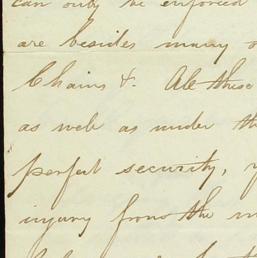 can only be enforced
are besides many
Chains &. All these
as well as under the
perfect security,
injury from the